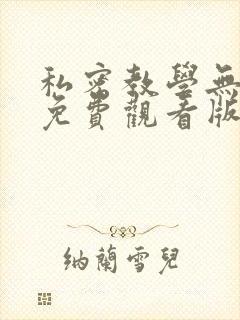 私密教學無
免費觀看版
納蘭雪兒